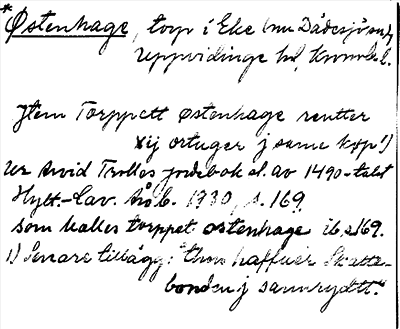 * Østenhage, torp i Eke (nu Dådesjö sn),
Uppvidinge hd, Kronob. l.
Jtem Torppett østenhage rentter
xij ortuger j same køp 1)
ur Arvid Trolles jordebok sl. av 1490-talet
Hylt-Cav. årsb. 1930, s. 169.
som kalles torppet østenhage ib. s. 169.
1) Senare tillägg: "thm haffuer Skatte-
bonden j samrydtt."